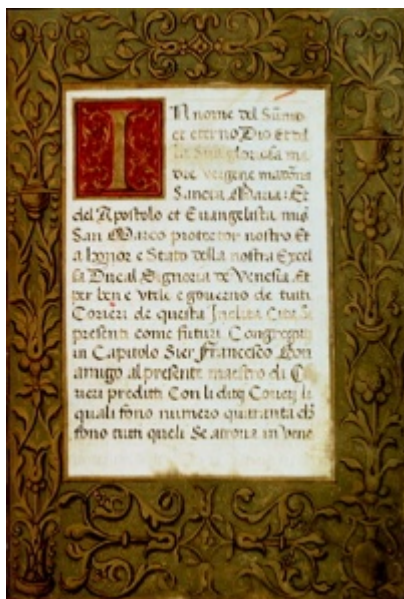 In nome del Sūmo
et eterno Dio Et del
la Sua gloriosa ma
dre vergene madōna
Sancta Maria: Et
del Apostolo et Euangelista mis̄
San Marco protettor nostro Et
a honor e Stato della nostra Excel
sa Ducal Signoria de Venesia Et
per ben e vtile e gouerno de tutti
Corieri de questa Inclita Cita
presenti come futuri Congregati
in Capitolo Sier Francesco Bon
amigo al presente maestro di Co
rieri preditti Con li ditti Corieri li
quali sono numero quaranta
sono tutti queli Se atroua in Vene